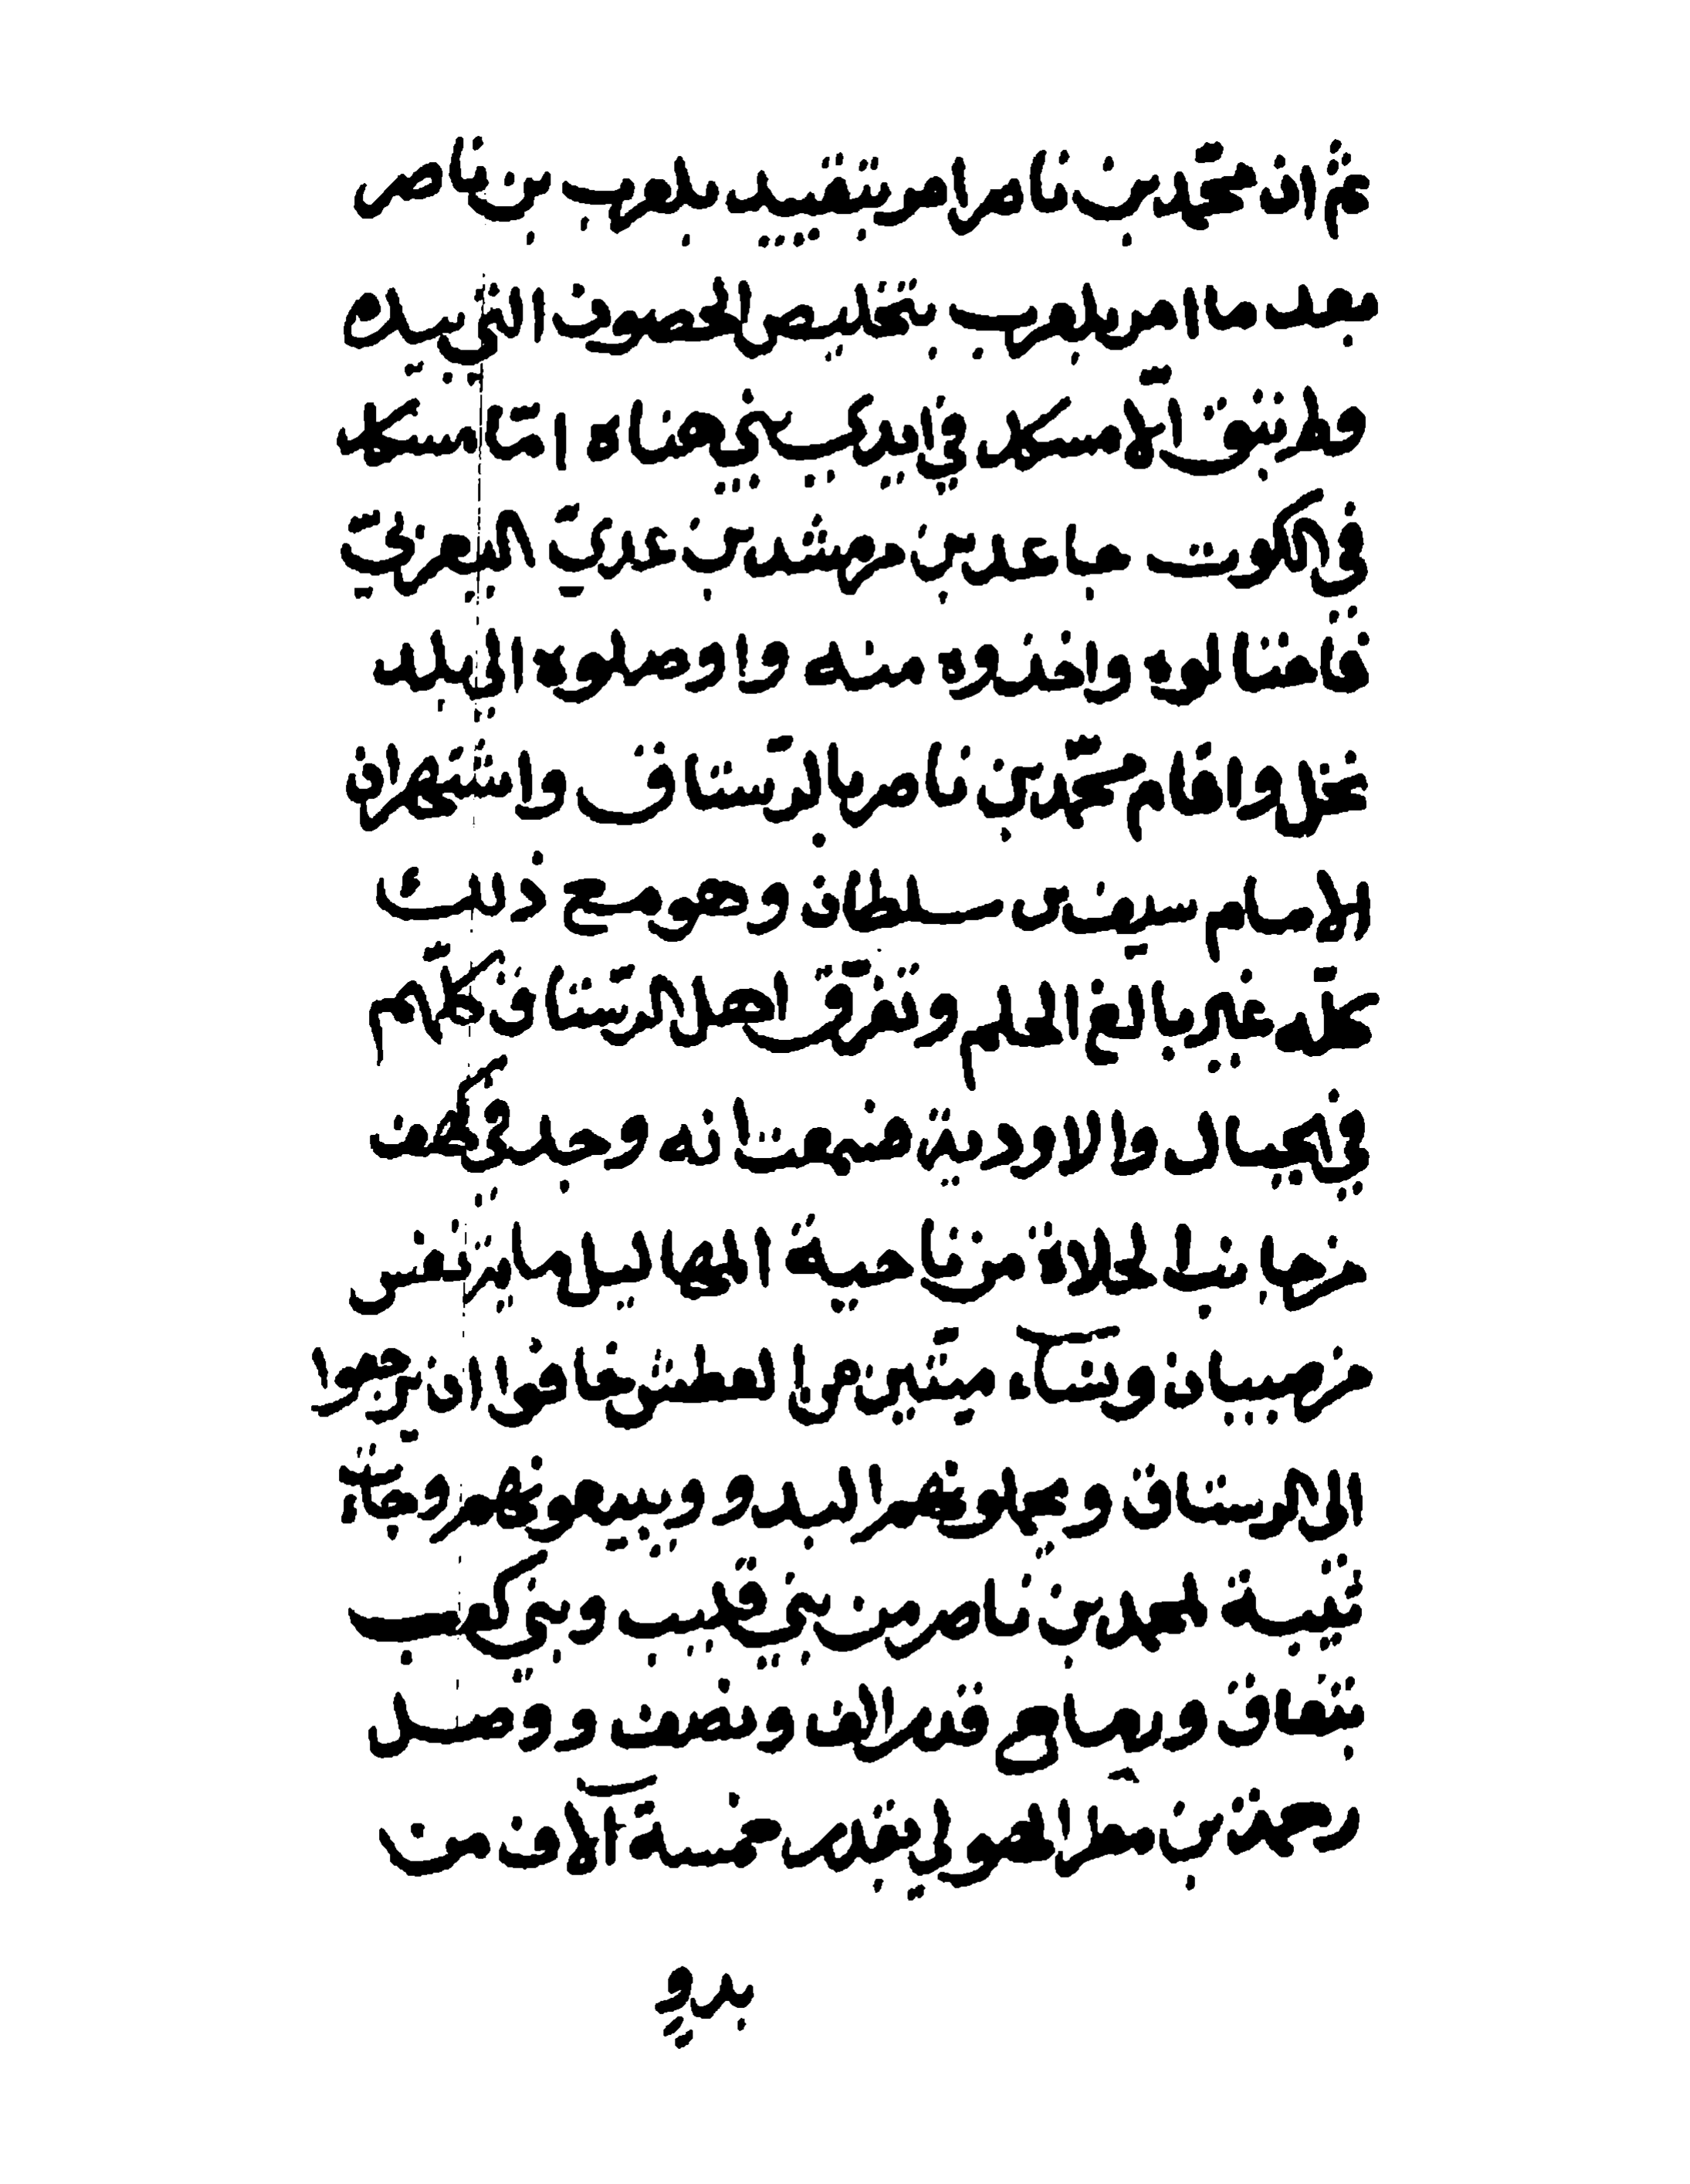 ثم ان محمّد بن ناصر امر بتقييد بلعرب بن ناصر
بعد ما امر بلعرب بتخليص الحصون التي بيده
ولم تبق الّا مسكد في ايدي بني هناه امّا مسكد
في الكوت جاعد بن مرشد بن عديّ اليعربيّ
فاحتالوه واخذوه منه واوصلوه الى بلد
نخل واقام محمّد بن ناصر بالرّستاق واشتهر ان
الامام سيف بن سلطان وهو مع ذلك
كلّه غير بالغ الحلم وتفرّق اهل الرّستاق كلّهم
في الجبال والاودية فسمعت انه وجد في كهف
من جانب الحلاة من ناحية المهاليل مايتي نفس
من صبيان ونسآء ميّتين من العطش خافوا ان يرجعوا
الى الرستاق ويحملونهم البدو ويبيعونهم وجاءت
ثنيبة لمحمد بن ناصر من بني قليب وبني كعب
بتفاق ورماح قدر الف ونصف ووصل
رحمة بن مطر الهولي بقدر خمسة آلاف من
بدو